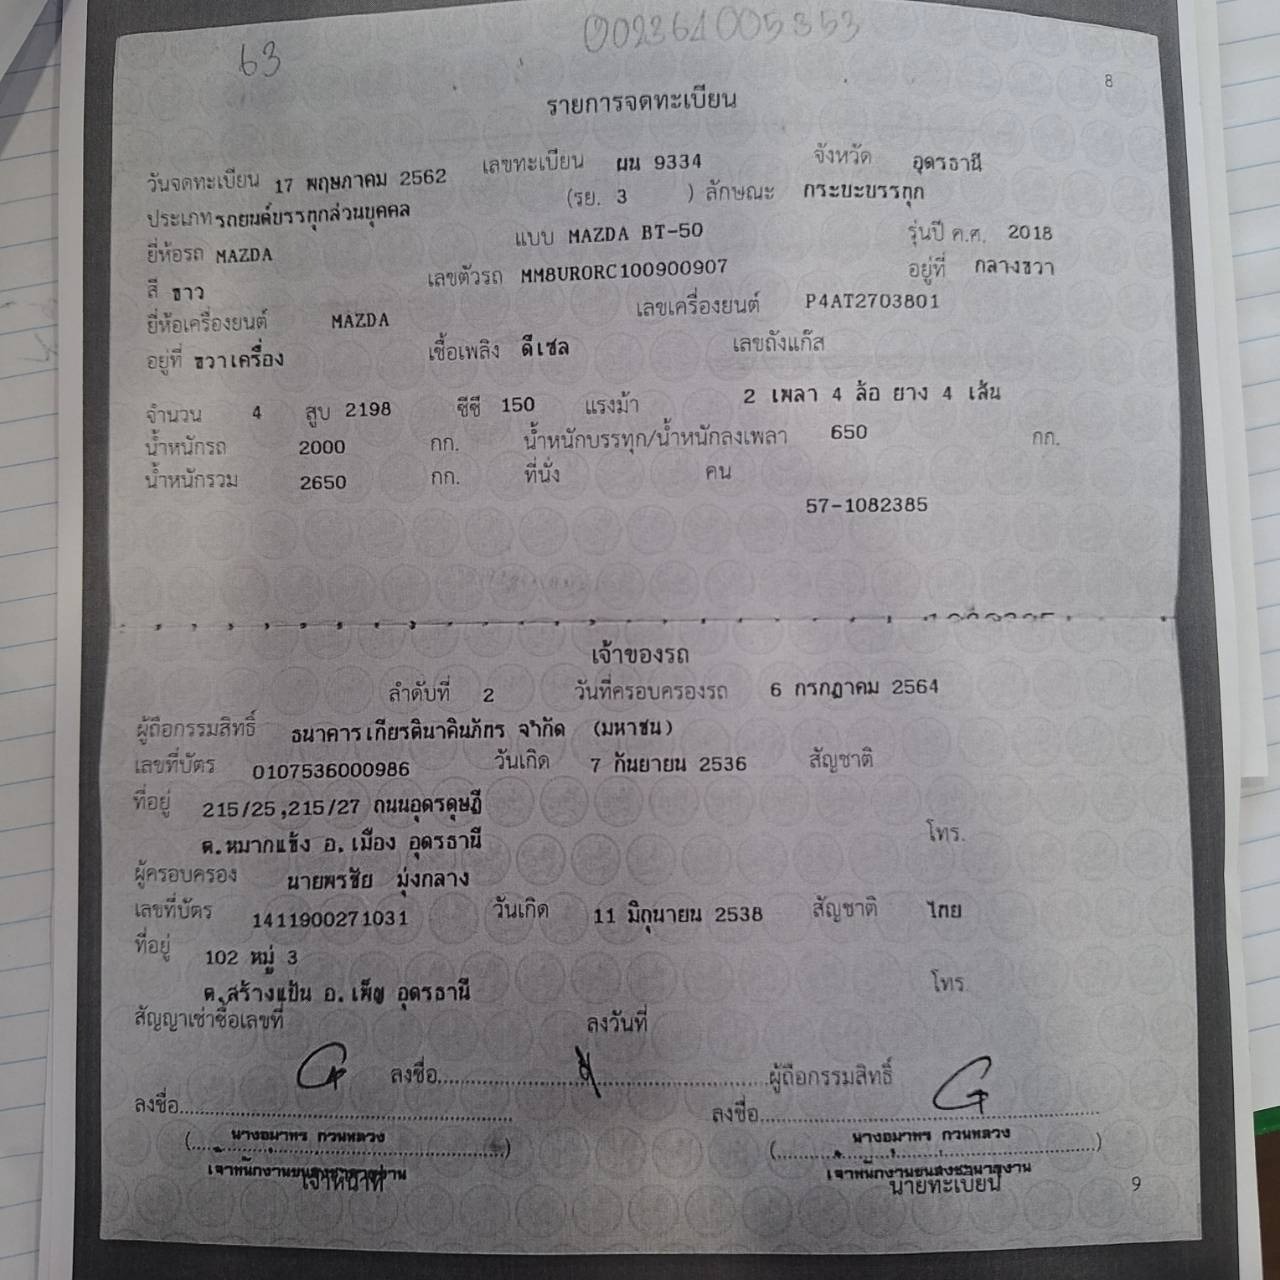 63
002364005353
8
รายการจดทะเบียน
วันจดทะเบียน 17 พฤษภาคม 2562 เลขทะเบียน ผน 9334 จังหวัด อุดรธานี
ประเภท รถยนต์บรรทุกส่วนบุคคล (รย. 3 ) ลักษณะ กระบะบรรทุก
ยี่ห้อรถ MAZDA แบบ MAZDA BT-50 รุ่นปี ค.ศ. 2018
สี ขาว เลขตัวรถ MM8UR0RC100900907 อยู่ที่ กลางขวา
ยี่ห้อเครื่องยนต์ MAZDA เลขเครื่องยนต์ P4AT2703801
อยู่ที่ ขวาเครื่อง เชื้อเพลิง ดีเซล เลขถังแก๊ส
จำนวน 4 สูบ 2198 ซีซี 150 แรงม้า 2 เพลา 4 ล้อ ยาง 4 เส้น
น้ำหนักรถ 2000 กก. น้ำหนักบรรทุก/น้ำหนักลงเพลา 650 กก.
น้ำหนักรวม 2650 กก. ที่นั่ง คน
57-1082385
เจ้าของรถ
ลำดับที่ 2 วันที่ครอบครองรถ 6 กรกฎาคม 2564
ผู้ถือกรรมสิทธิ์ ธนาคารเกียรตินาคินภัทร จำกัด (มหาชน)
เลขที่บัตร 0107536000986 วันเกิด 7 กันยายน 2536 สัญชาติ
ที่อยู่ 215/25,215/27 ถนนอุดรดุษฎี
ต.หมากแข้ง อ.เมือง อุดรธานี โทร.
ผู้ครอบครอง นายพรชัย มุ่งกลาง
เลขที่บัตร 1411900271031 วันเกิด 11 มิถุนายน 2538 สัญชาติ ไทย
ที่อยู่ 102 หมู่ 3
ต.สร้างแป้น อ.เพ็ญ อุดรธานี โทร.
สัญญาเช่าซื้อเลขที่ ลงวันที่
ลงชื่อ ผู้ถือกรรมสิทธิ์
ลงชื่อ ลงชื่อ
(นางอุมาพร กวนหลวง) (นางอุมาพร กวนหลวง)
เจ้าพนักงานขนส่งชำนาญงาน เจ้าพนักงานขนส่งชำนาญงาน
เจ้าหน้าที่ นายทะเบียน
9